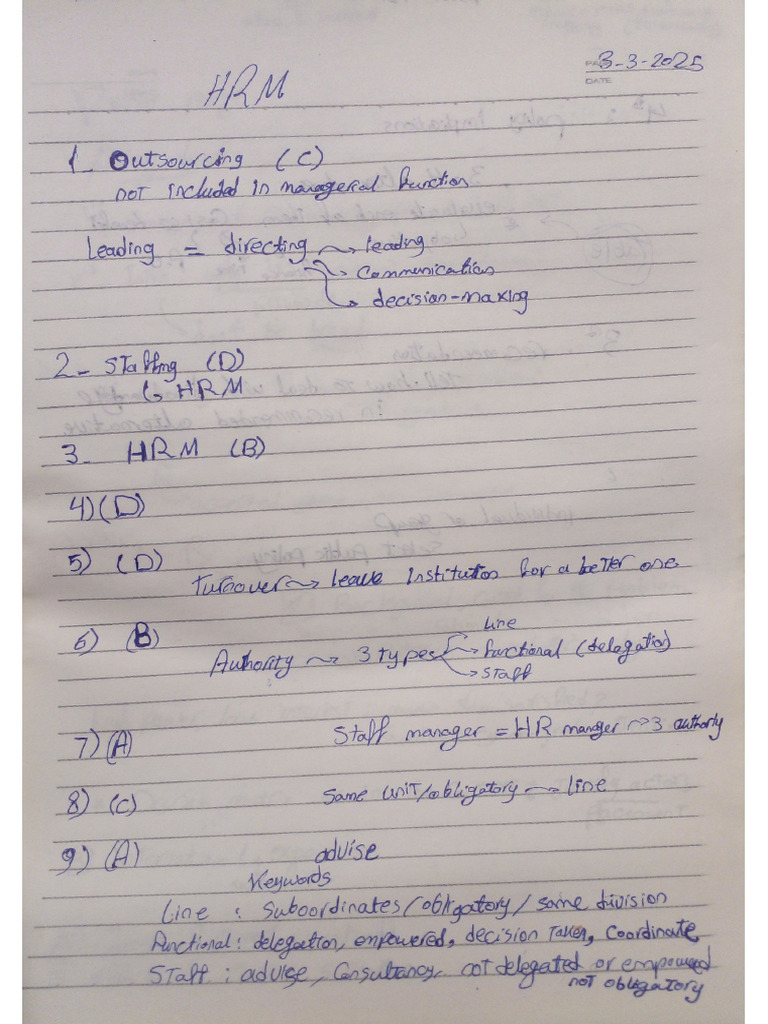 PAGE
DATE
3-3-2025
HRM
1- Outsourcing (C)
not included in managerial function
Leading = directing → leading
→ communication
→ decision-making
2- Staffing (D)
↳ HRM
3- HRM (B)
4) (D)
5) (D)
Turnover → leave institution for a better one
6) (B)
Line
Authority → 3 types → functional (delegation)
→ staff
7) (A) Staff manager = HR manger → 3 authority
8) (C) Same unit/obligatory → line
9) (A) advise
Keywords
Line : Suboordinates/obligatory/same division
Functional : delegation, empowered, decision taken, coordinate
Staff : advise, Consultancy, not delegated or empowered
not obligatory